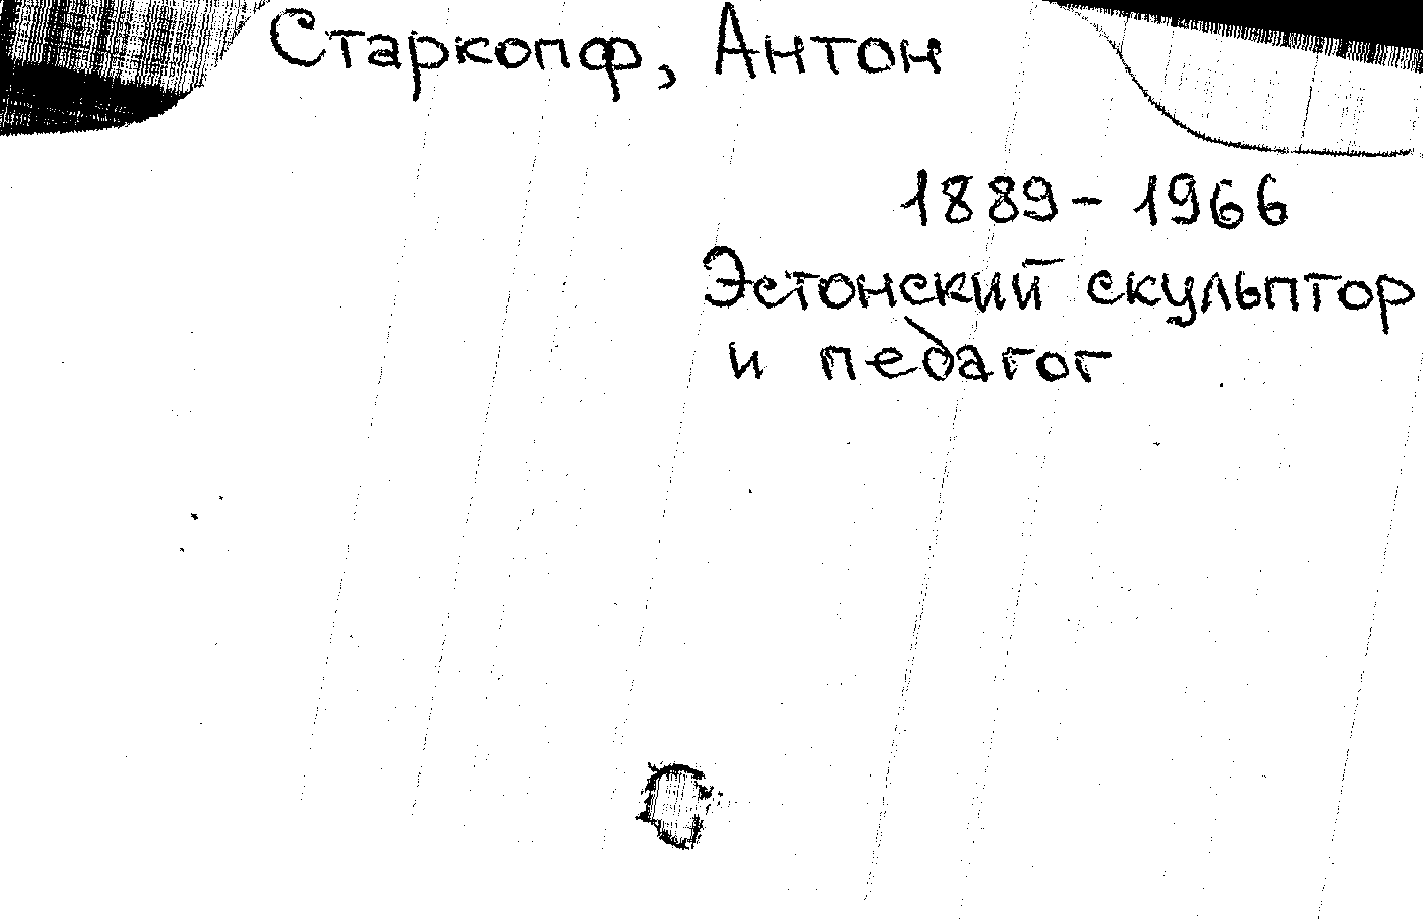 Старкопф, Антон
1889 - 1966
Эстонский скульптор
и педагог